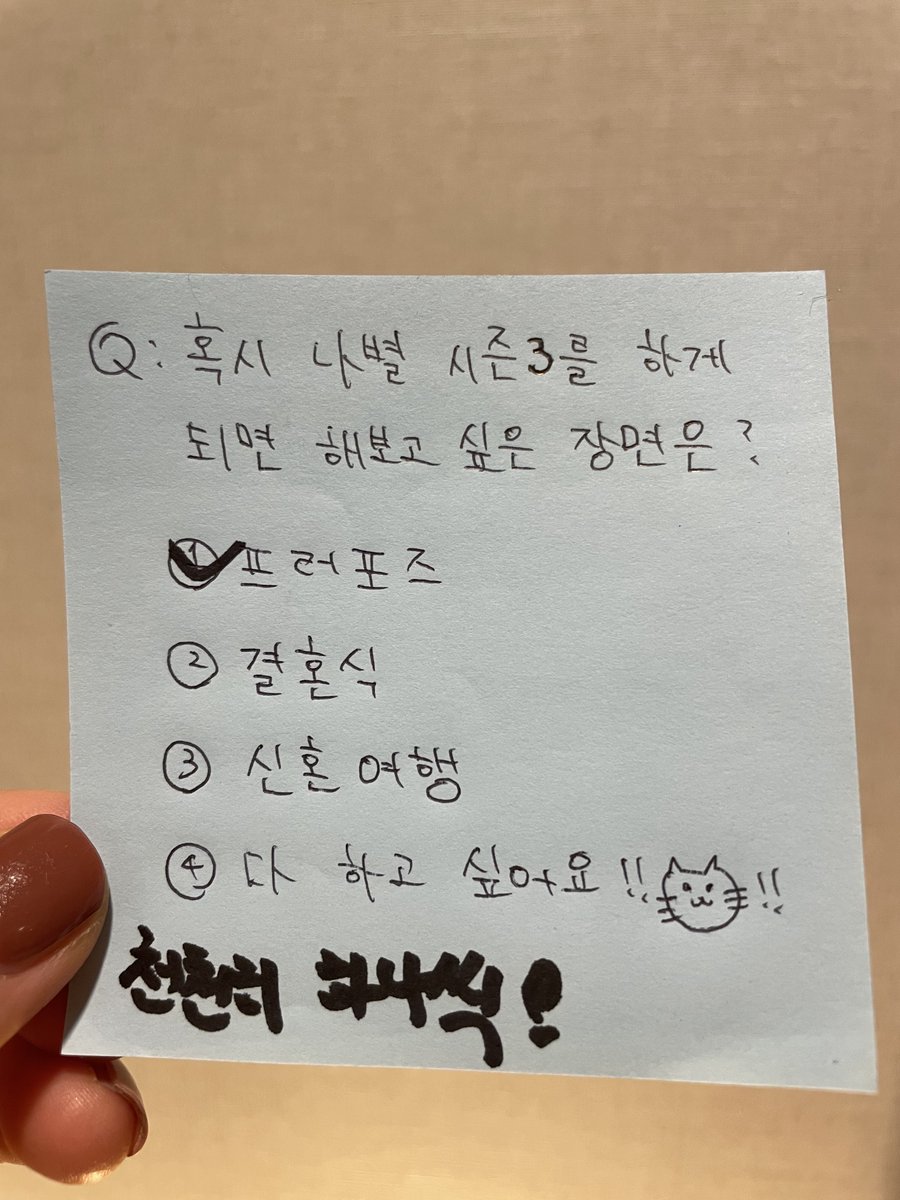 Q: 혹시 나별 시즌3를 하게
되면 해보고 싶은 장면은?
① 프러포즈
② 결혼식
③ 신혼여행
④ 다 하고 싶어요!! !!
천천히 하나씩!